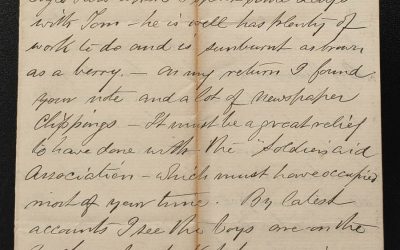 with Tom – he is well has plenty of
work to do and is sunburnt as brown
as a berry. – On my return I found
your note and a lot of newspaper
clippings – It must be a great relief
to have done with the "Soldiers aid
Association – which must have occupied
most of your time. By latest
accounts I see the boys are on the